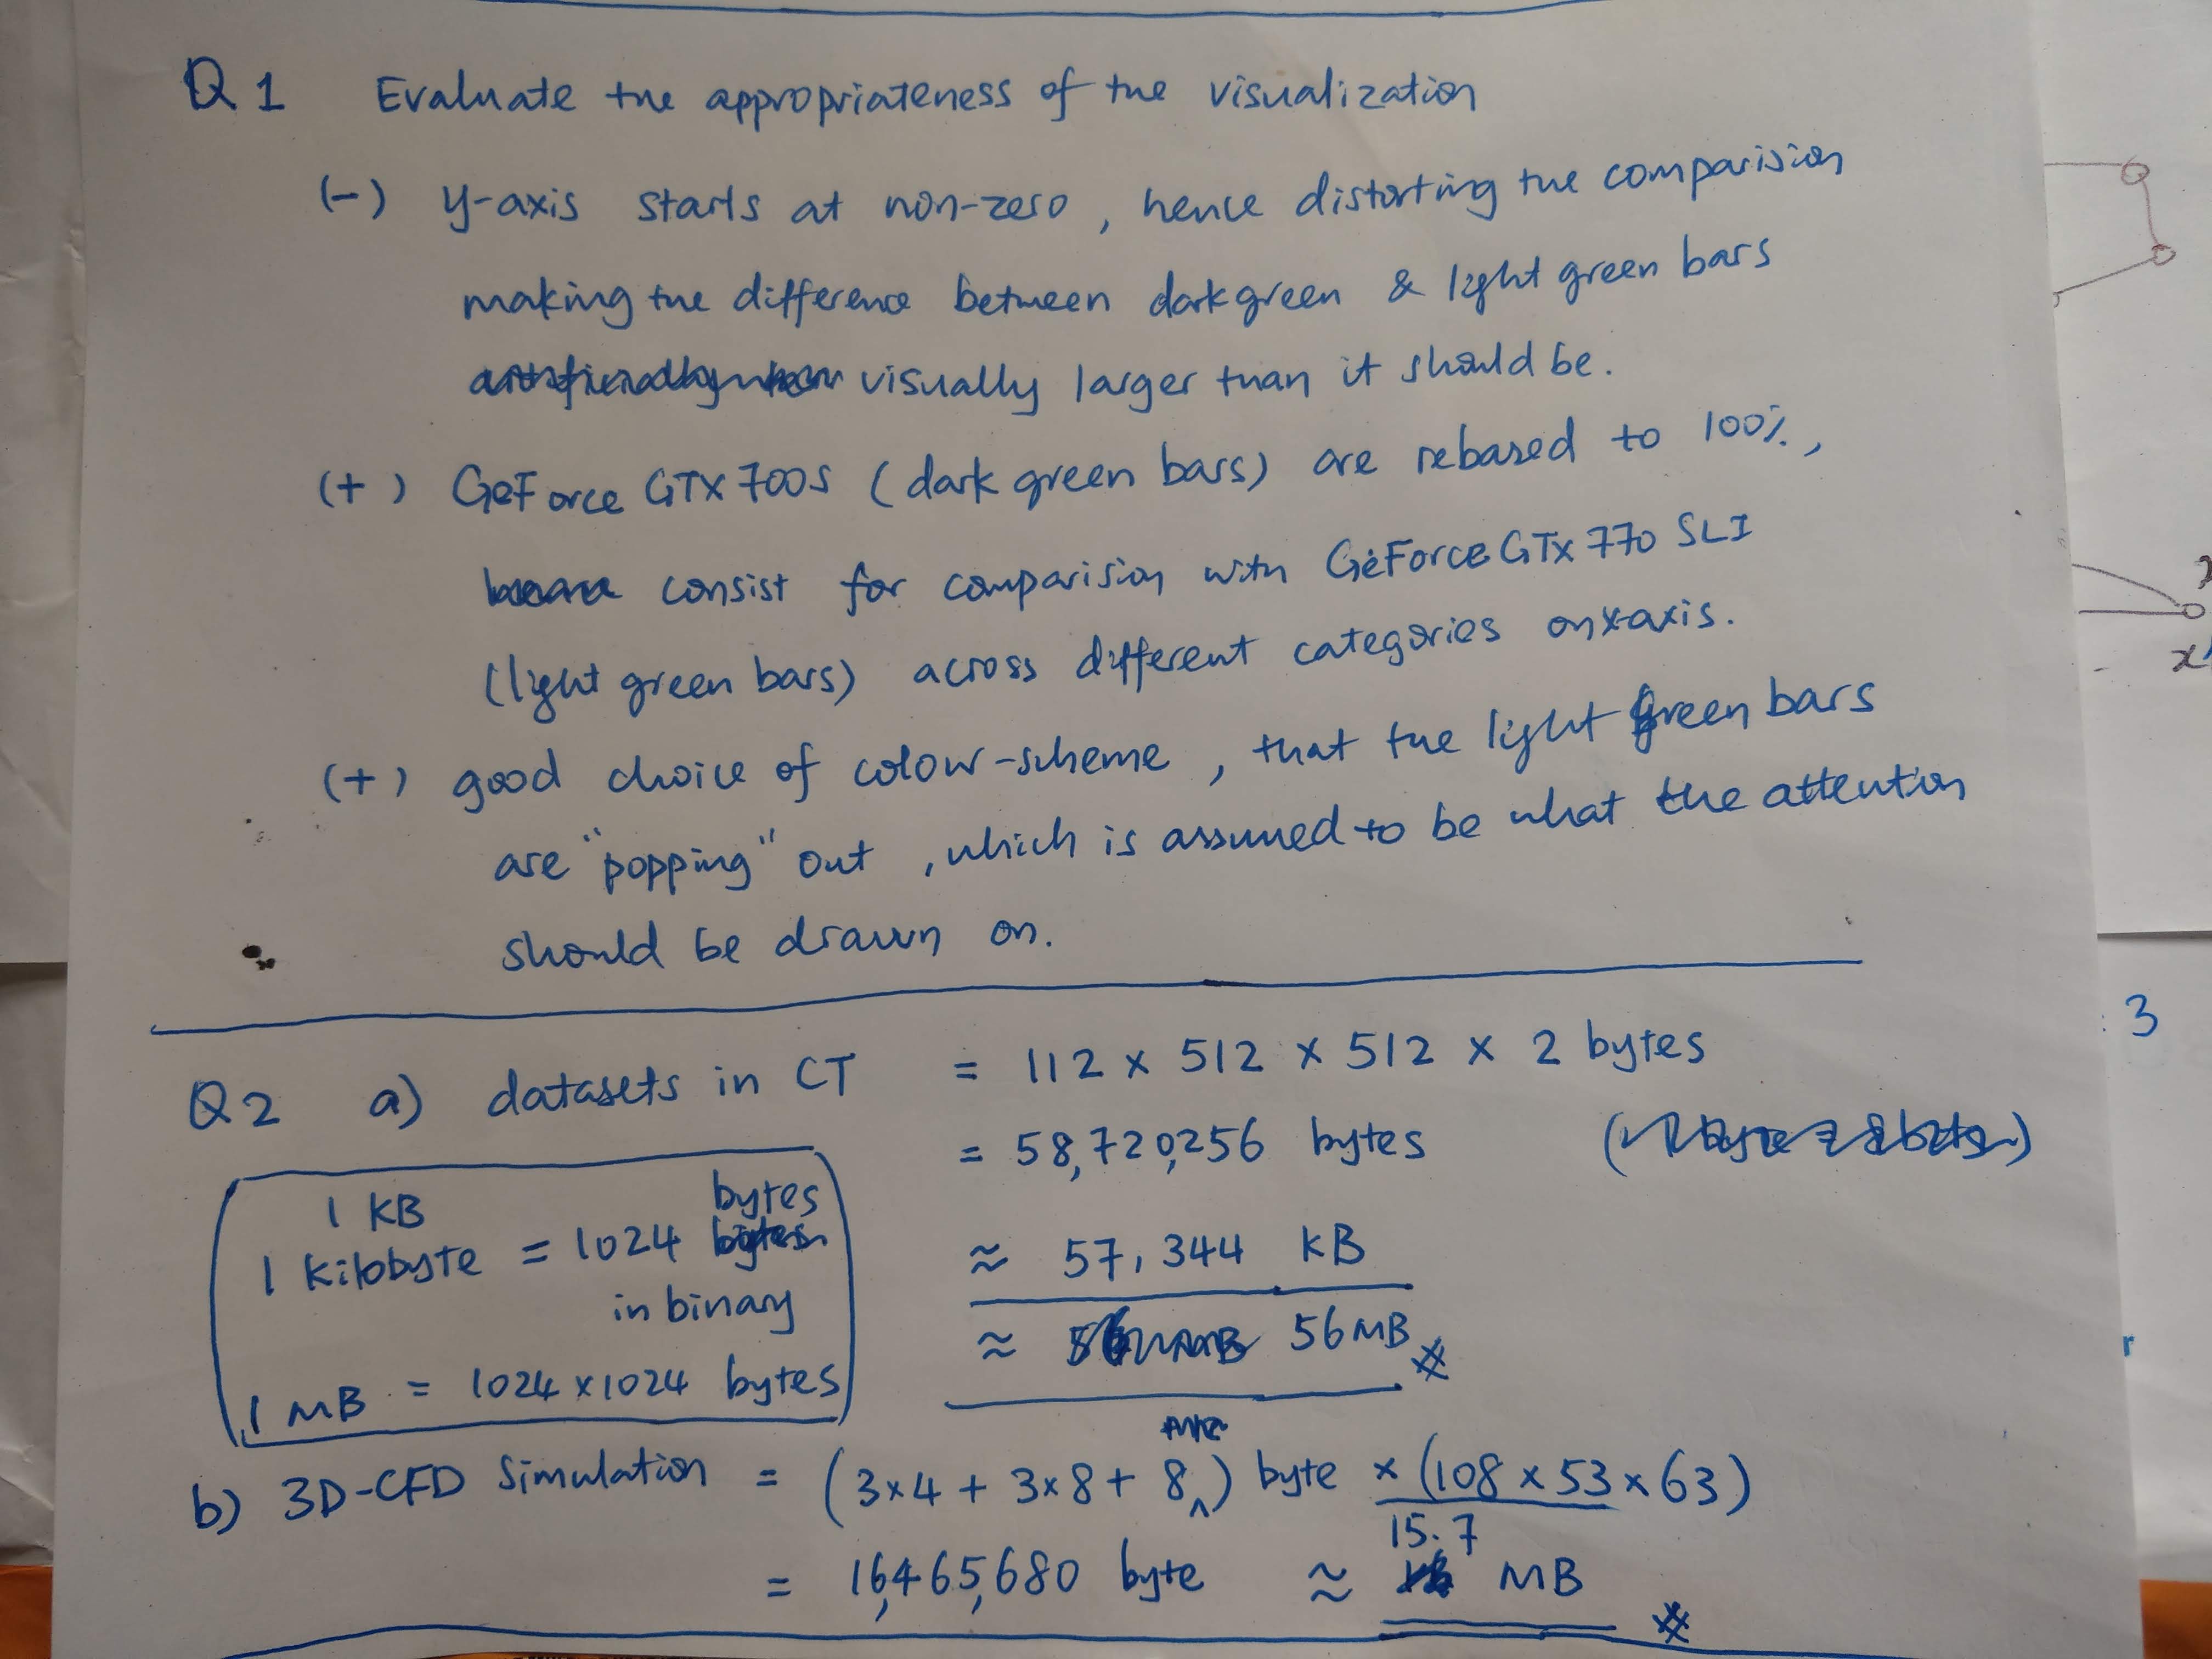 Q1 Evaluate the appropriateness of the visualization
(-) y-axis starts at non-zero, hence distorting the comparision
making the difference between dark green & light green bars
visually larger than it should be.
(+) GeForce GTX 700s (dark green bars) are rebased to 100%,
consist for comparision with GeForce GTX 770 SLI
(light green bars) across different categories on x-axis.
(+) good choice of colour-scheme, that the light green bars
are "popping" out, which is assumed to be what the attention
should be drawn on.
Q2 a) datasets in CT = 112 x 512 x 512 x 2 bytes
= 58,720,256 bytes
≈ 57,344 KB
≈ 56 MB
1 KB
1 kilobyte = 1024 bytes
in binary
1 MB = 1024 x 1024 bytes
b) 3D-CFD Simulation = (3x4 + 3x8 + 8) byte x (108 x 53 x 63)
= 16,465,680 byte ≈ 15.7 MB
3
r
x